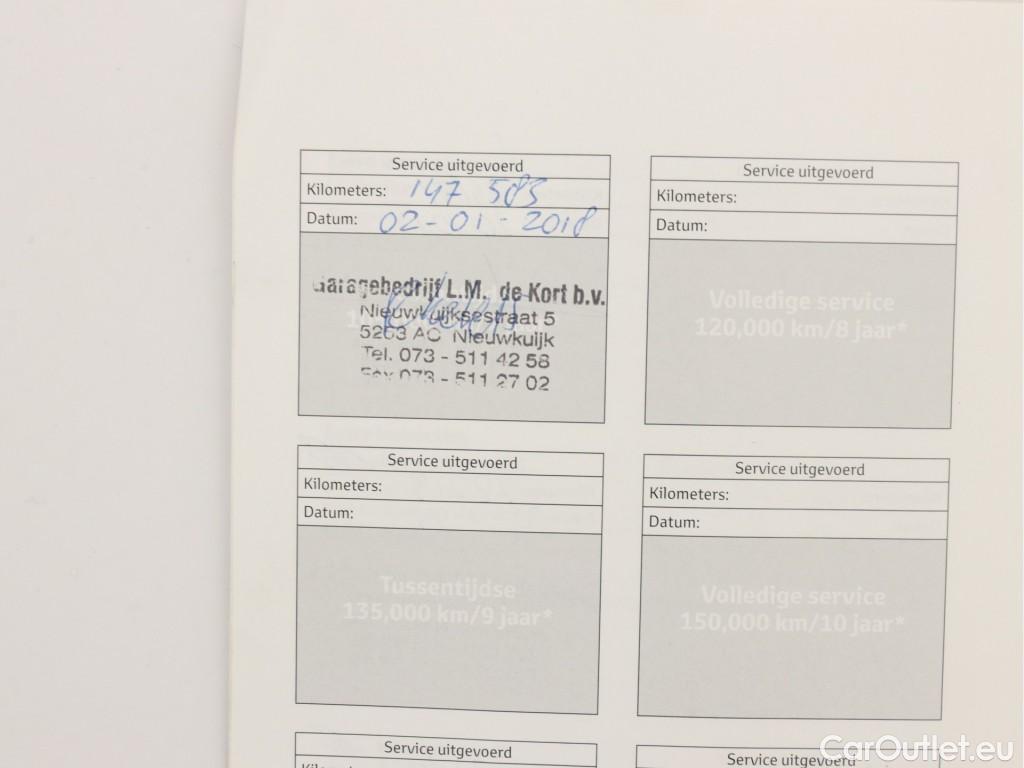 Service uitgevoerd
Kilometers: 147 583
Datum: 02-01-2018
Garagebedrijf L.M. de Kort b.v.
Nieuwkuijksestraat 5
5253 AC Nieuwkuijk
Tel. 073 - 511 42 58
Fax 073 - 511 27 02
Service uitgevoerd
Kilometers:
Datum:
Volledige service
120,000 km/8 jaar*
Service uitgevoerd
Kilometers:
Datum:
Tussentijdse
135,000 km/9 jaar*
Service uitgevoerd
Kilometers:
Datum:
Volledige service
150,000 km/10 jaar*
Service uitgevoerd
Kilometers:
Service uitgevoerd
CarOutlet.eu